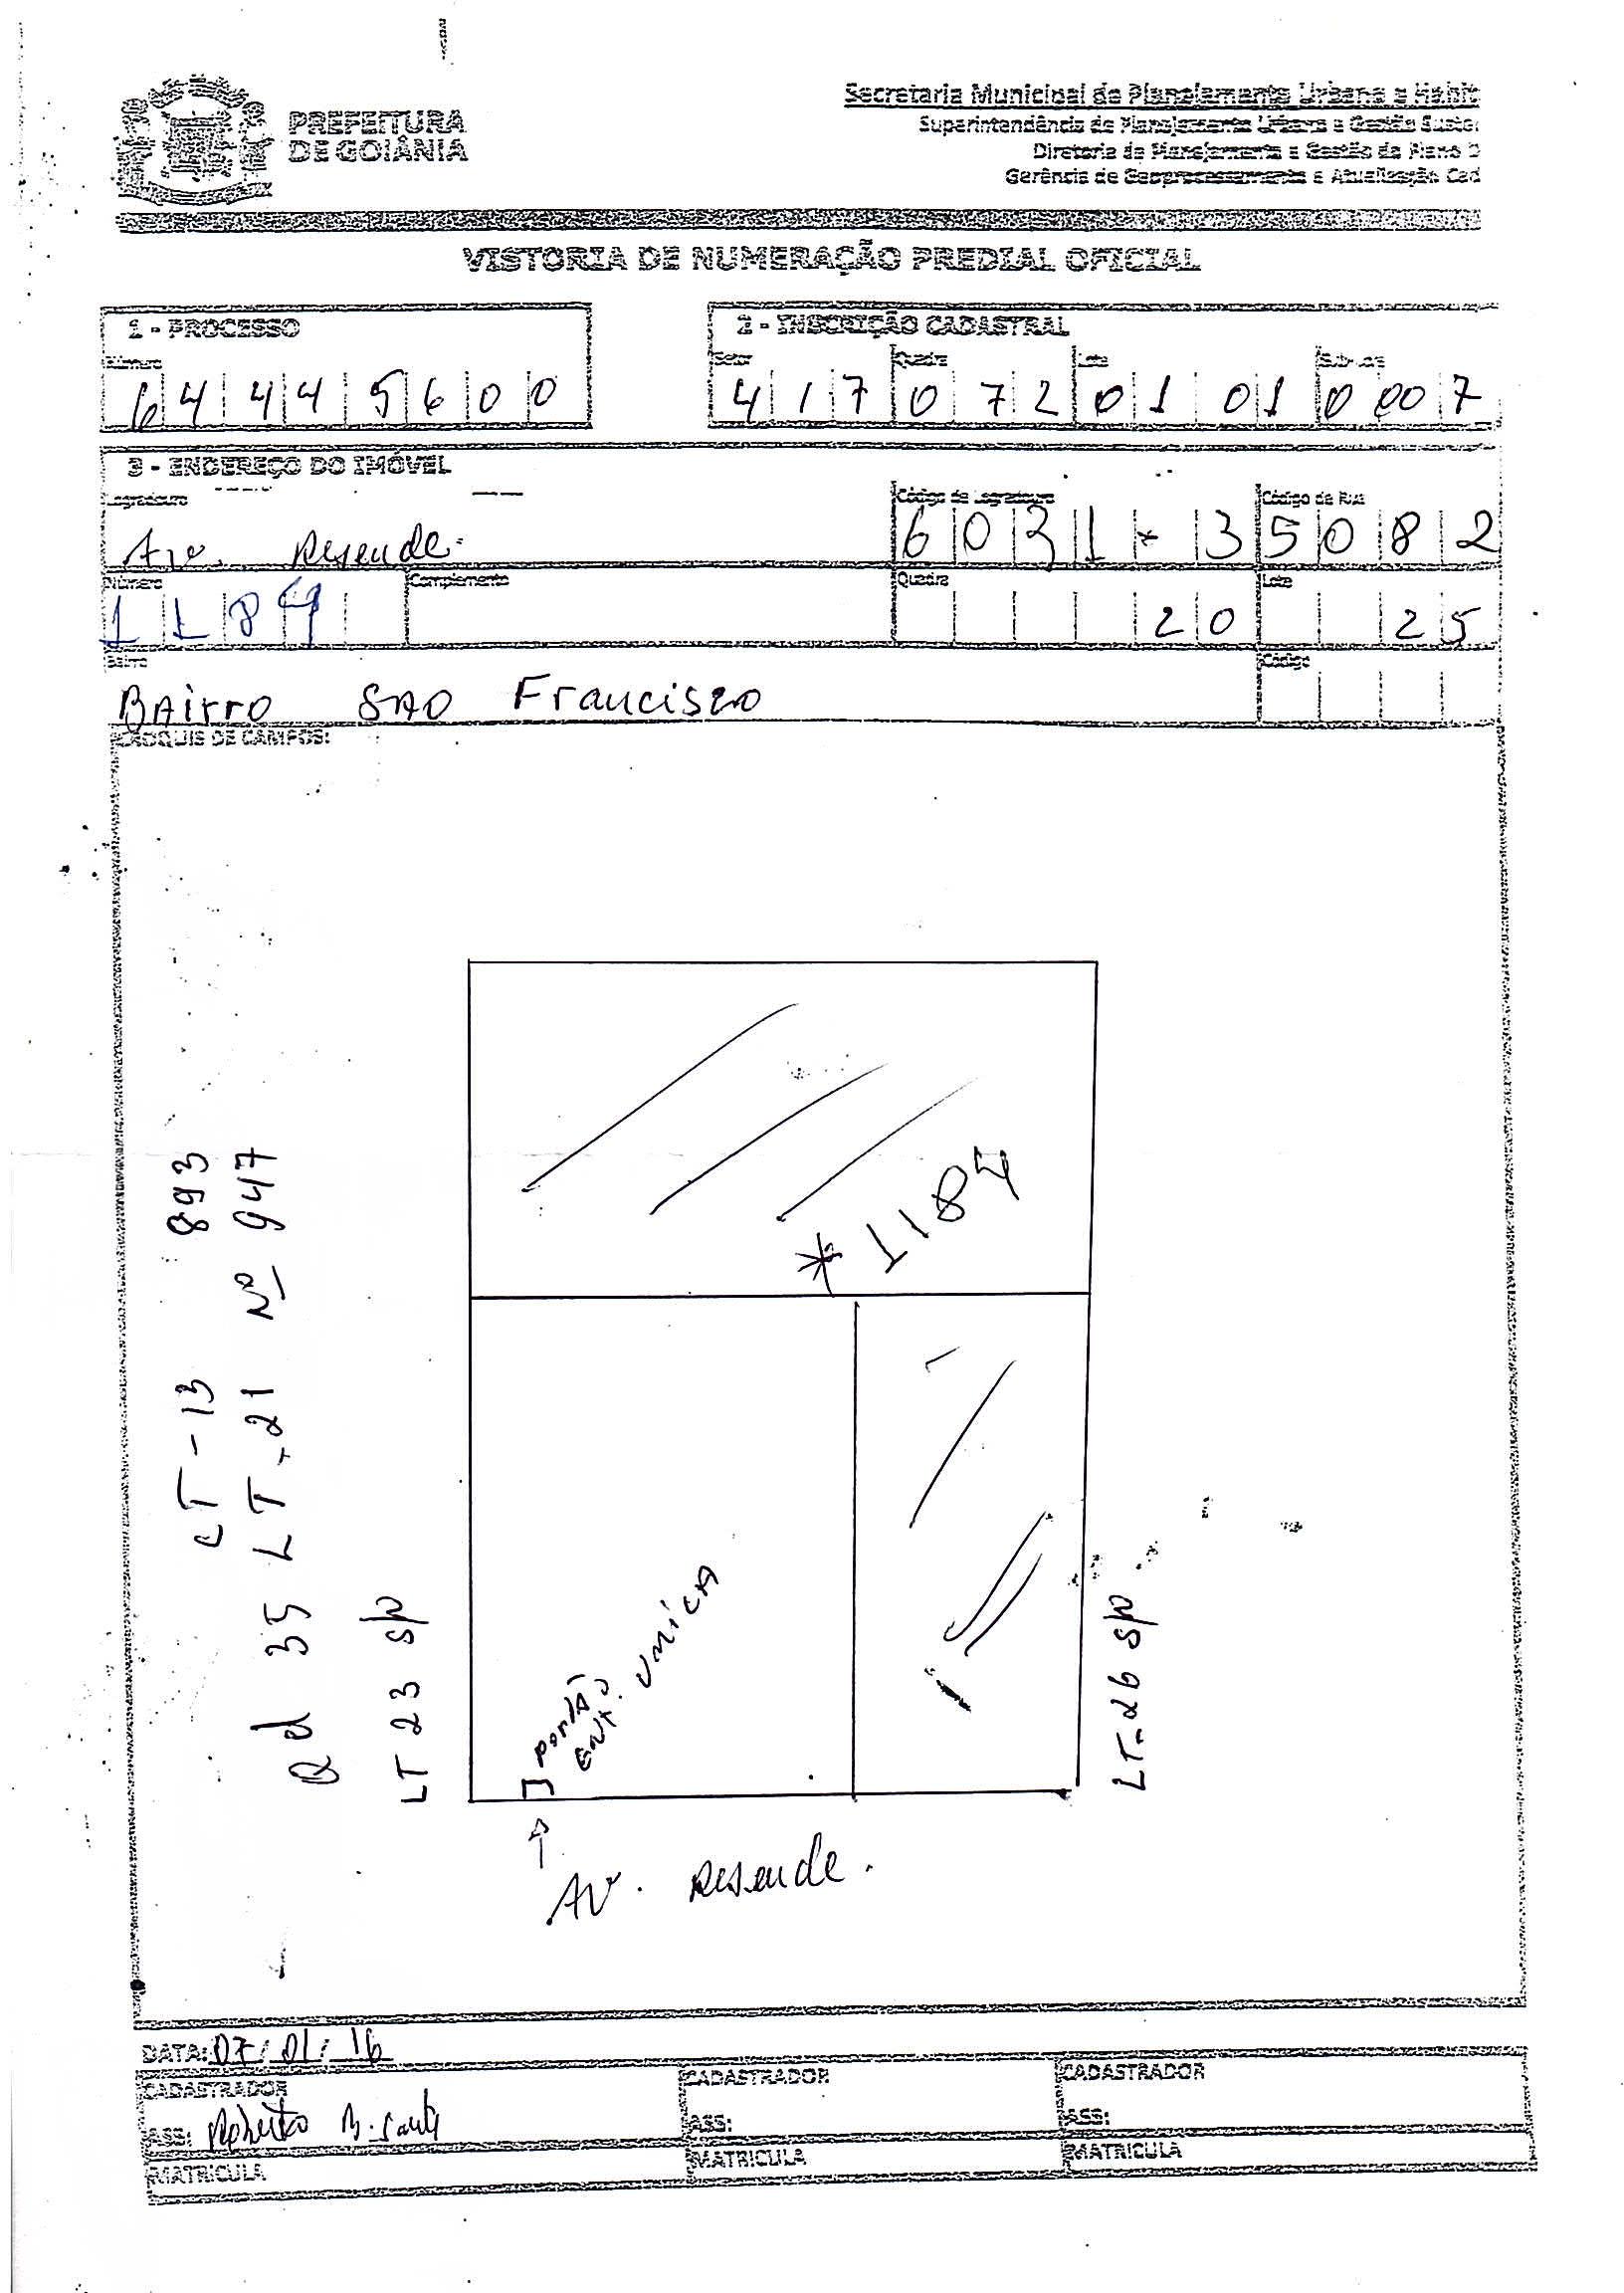 PREFEITURA
DE GOIÂNIA
Secretaria Municipal de Planejamento Urbano e Habit
Superintendência de Planejamento Urbano e Gestão Suste
Diretoria de Planejamento e Gestão do Plano D
Gerência de Geoprocessamento e Atualização Cad
VISTORIA DE NUMERAÇÃO PREDIAL OFICIAL
1 - PROCESSO
Número
6 4 4 4 5 6 0 0
2 - INSCRIÇÃO CADASTRAL
Setor Quadra Lote Sub-Lote
4 1 7 0 7 2 0 1 0 1 0 00 7
3 - ENDEREÇO DO IMÓVEL
Logradouro Código de Logradouro Código de Rua
Av. Resende. 6 0 3 1 - 3 5 0 8 2
Número Complemento Quadra Lote
1 1 8 4 2 0 2 5
Bairro Código
BAirro SAO Francisco
CROQUIS DE CAMPOS:
* 1184
LT-13 893
Qd 35 LT-21 Nº 947
LT 23 S/N
portão
ent. Unica
LT-26 S/N
AV. Resende.
DATA: 07/01/16
CADASTRADOR CADASTRADOR CADASTRADOR
ASS: Roberto ASS: ASS:
MATRICULA MATRICULA MATRICULA